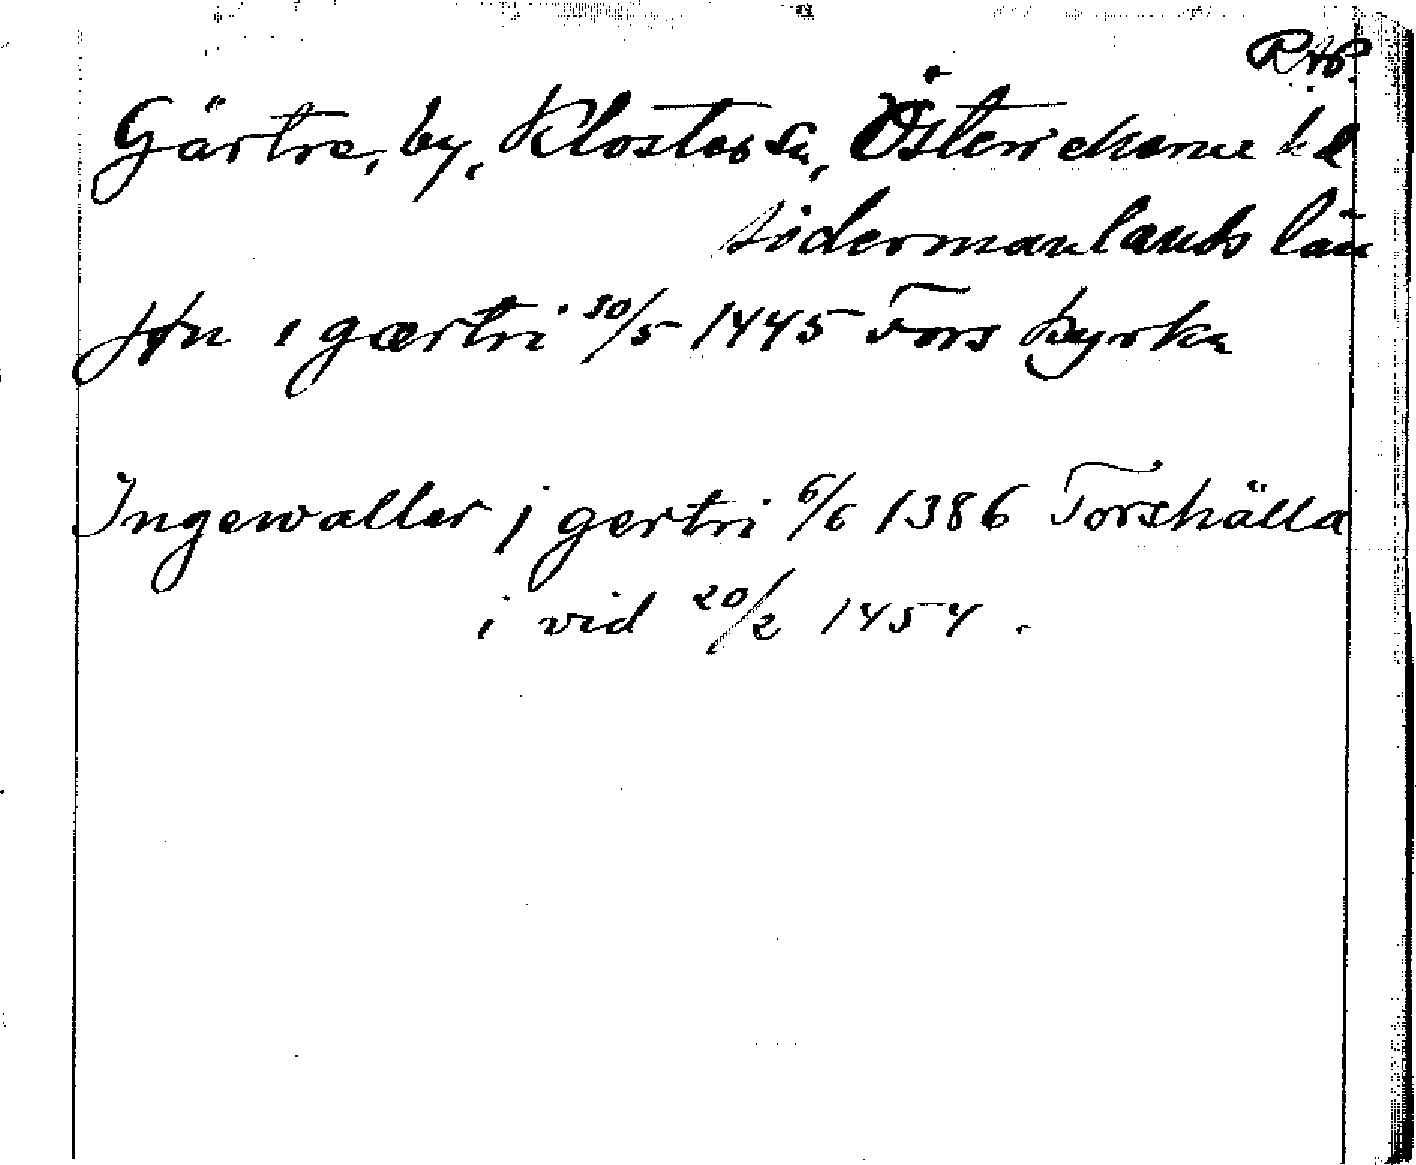 RAP.
Gärtre, by, Kloster sn, Österrekarne hd
Södermanlands län
Jøn i gærtri 30/5 1445 Fors kyrka
Ingewaller j gertri 6/6 1386 Torshälla
i vid 20/2 1454.